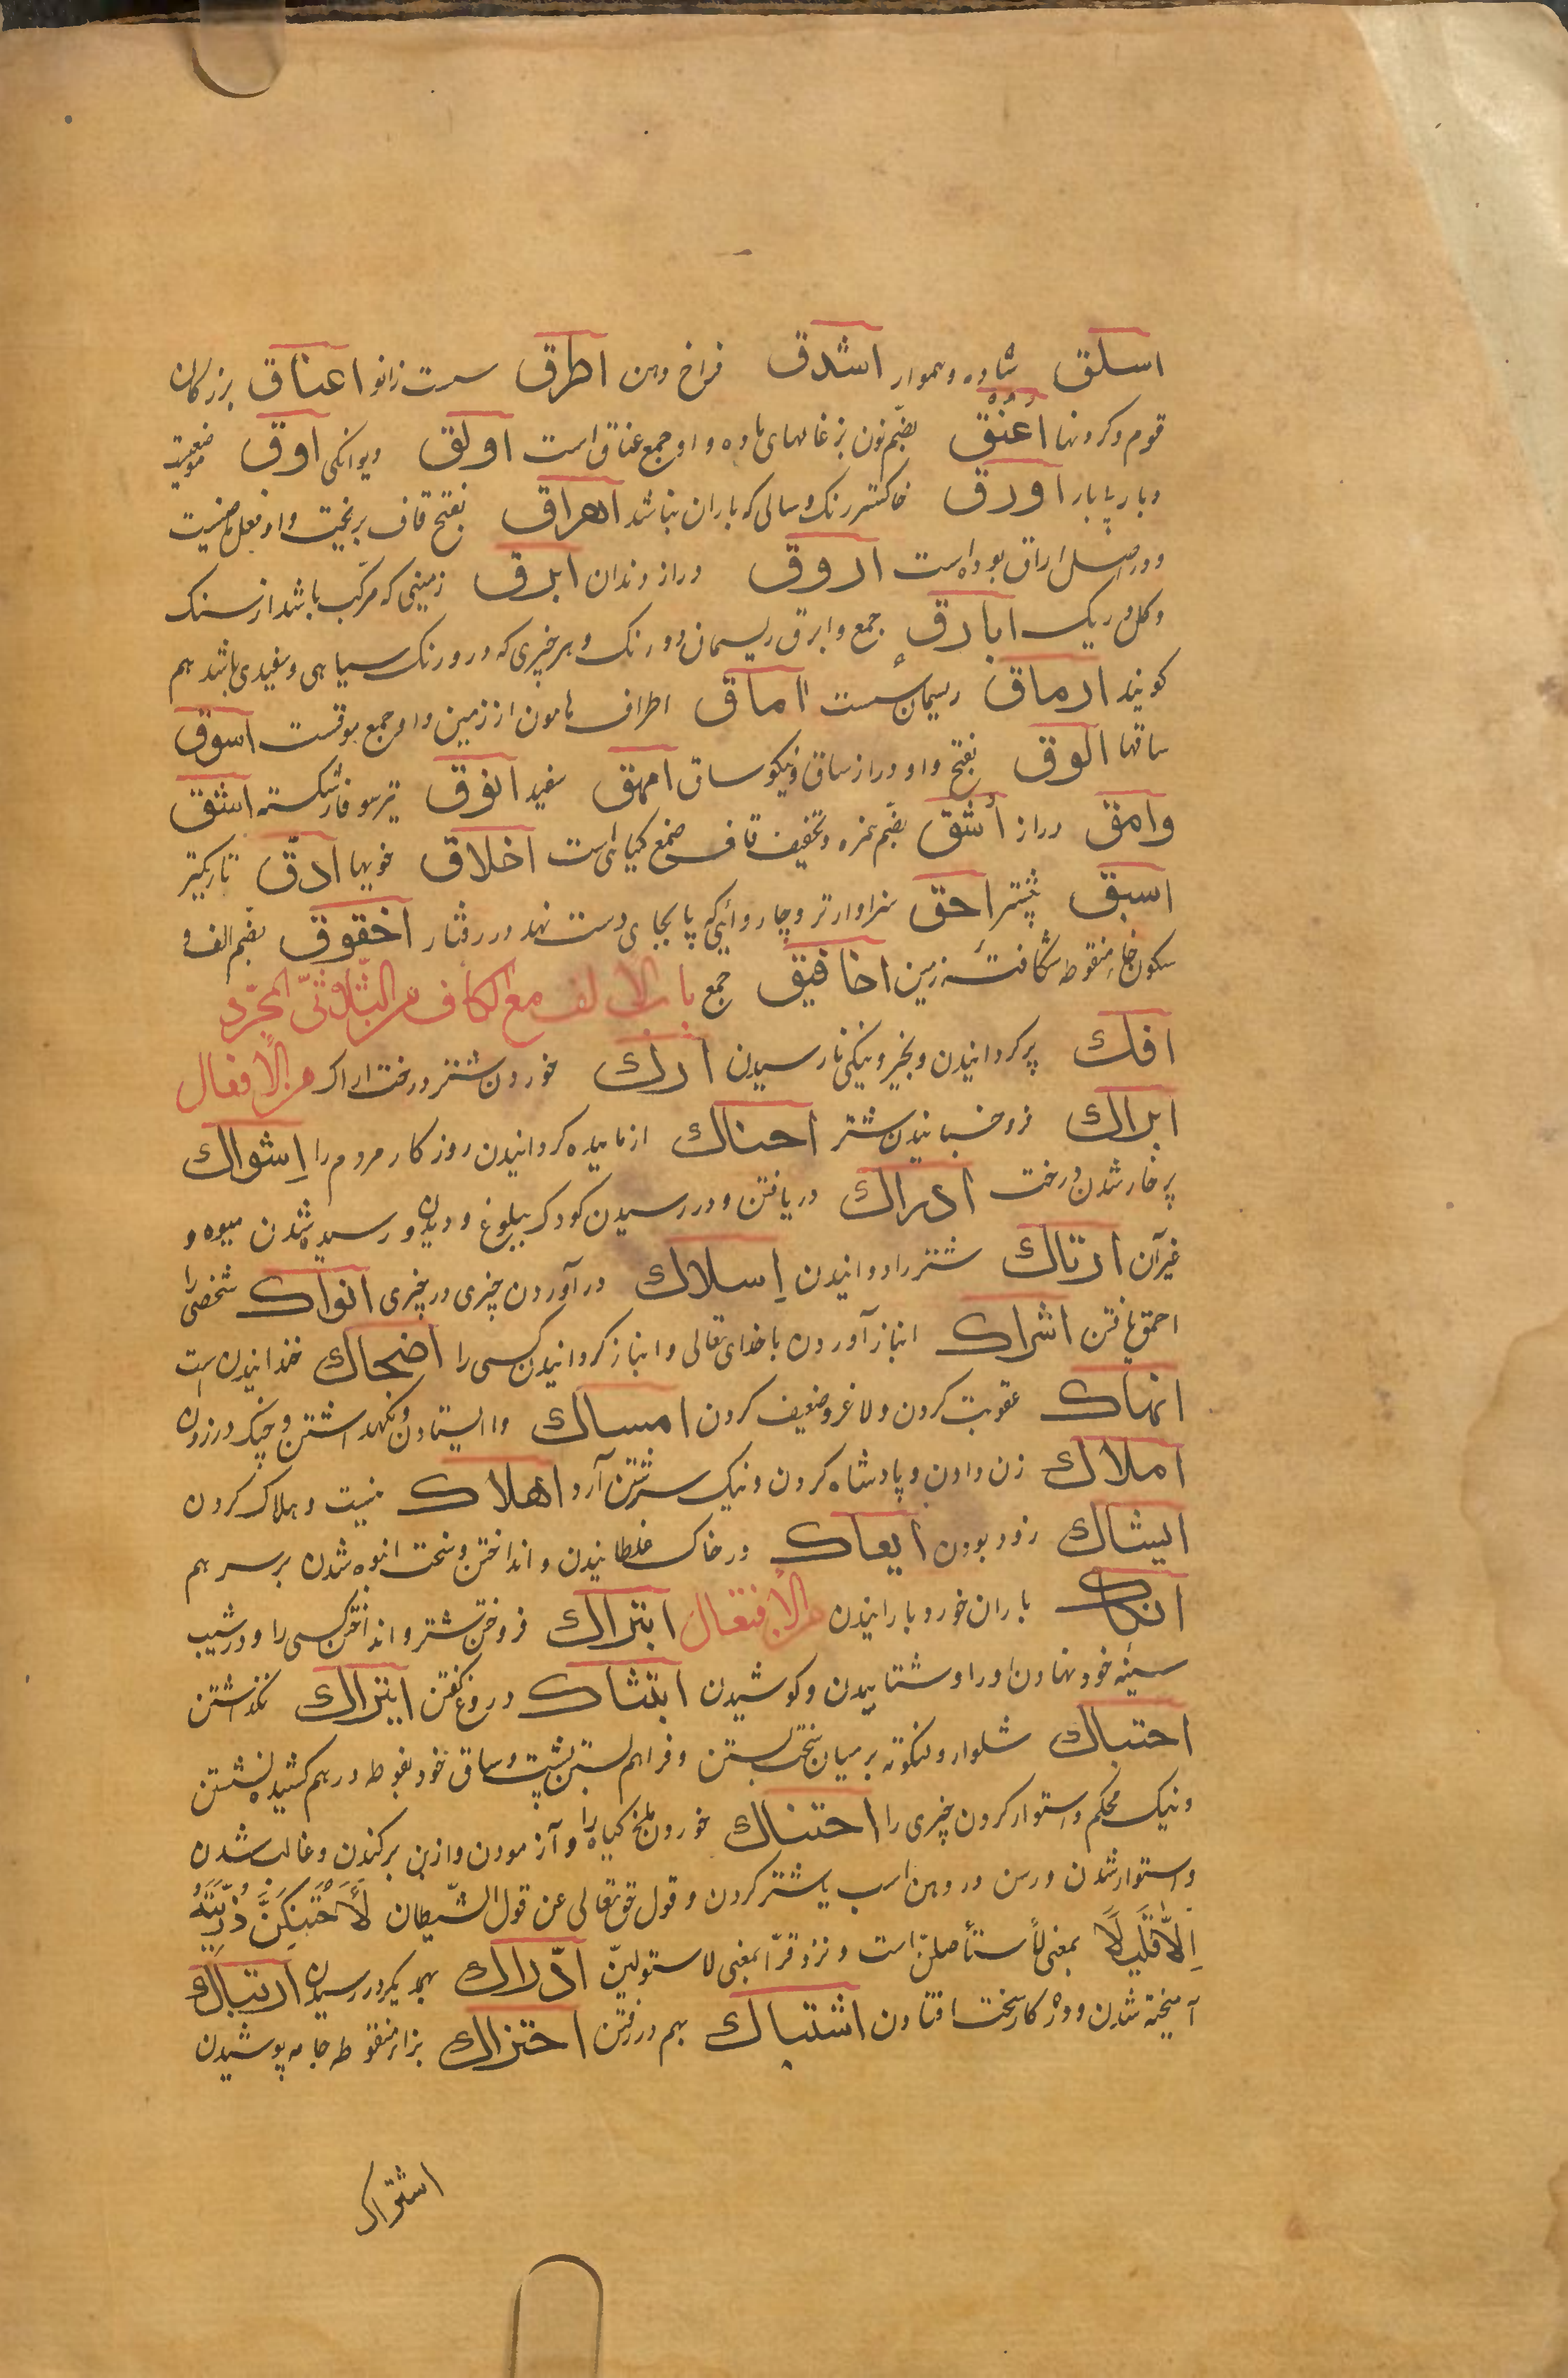 اسلق ساده و هموار اشدق فراخ دهن اطرق سست زانو اعناق بزرکان
قوم و کردنها اعنق بضم نون بزغالهای ماده و او جمع عناق است اولق دیوانکی اوق
و بار اورق خاکستر رنک و سالی که باران نباشد اهراق بفتح قاف بریخت و او فعل ماضیست
و در اصل اراق بوده است اروق دراز دندان ابرق زمینی که مرکب باشد از سنک
و کل و ریک ابارق جمع و ابرق ریسمان دو رنک و هر چیزی که درو رنک سیاهی و سفیدی باشد هم
کویند ارماق ریسمان سست اماق اطراف هامون از زمین و او جمع موقست اسوق
ساقها الوق بفتح واو دراز ساق و نیکو ساق امهق سفید افوق تیر سوفار شکسته اشق
وامق دراز اشق بضم همزه و تخفیف قاف صمغ کیاهی است اخلاق خویها ادق باریکتر
اسبق پیشتر احق سزاوارتر و چاروائی که پا بجای دست نهد در رفتار اخقوق بضم الف و
سکون خاء منقوطه شکافتهٔ زمین اخاقیق جمع باب الالف مع الکاف من الثلاثی المجرد
افک بر کردانیدن و بخیر و نیکی نارسیدن ارک خوردن شتر درخت اراک من الافعال
ابراک فرو خسبانیدن شتر احناک ازماییده کردانیدن روزکار مردم را اشواک
پر خار شدن درخت ادراک دریافتن و در رسیدن کودک ببلوغ و دیدن و رسیده شدن میوه و
غیر آن ارتاک شتر را دوانیدن اسلاک در آوردن چیزی در چیزی انواک شخصی را
احمق یافتن اشراک انباز آوردن با خدای تعالی و انباز کردانیدن کسی را اضحاک خندانیدن است
انهاک عقوبت کردن و لاغر و ضعیف کردن امساک وا ایستادن و نکهداشتن و چنک در زدن
املاک زن دادن و پادشاه کردن و نیک سرشتن آرد اهلاک نیست و هلاک کردن
ایشاک زود بودن ایعاک در خاک غلطانیدن و انداختن و سخت انبوه شدن بر سر هم
ارکاک باران خورد بارانیدن من الافتعال ابتراک فروختن شتر و انداختن کسی را و در شیب
سینهٔ خود نهادن او را و شتابیدن و کوشیدن ابتشاک دروغ کفتن اتراک نکذاشتن
احتباک شلوار و لنکوته بر میان سخت بستن و فراهم بستن پشت و ساق خود بفوطه در هم کشیده نشستن
و نیک محکم و استوار کردن چیزی را احتناک خوردن ملخ کیاه را و آزمودن و از بن برکندن و غالب شدن
و استوار شدن و رسن در دهن اسب یا شتر کردن و قول حق تعالی عن قول الشیطان لَأَحْتَنِکَنَّ ذُرِّیَّتَهُ
اِلَّا قَلِیلًا بمعنی لأستأصلن است و نزد فرّا بمعنی لاستولین ادّراک بهم یکدیکر در رسیدن ارتباک
آمیخته شدن و در کار سخت افتادن اشتباک بهم در رفتن احتزاک بزاء منقوطه جامه پوشیدن
اشتراک